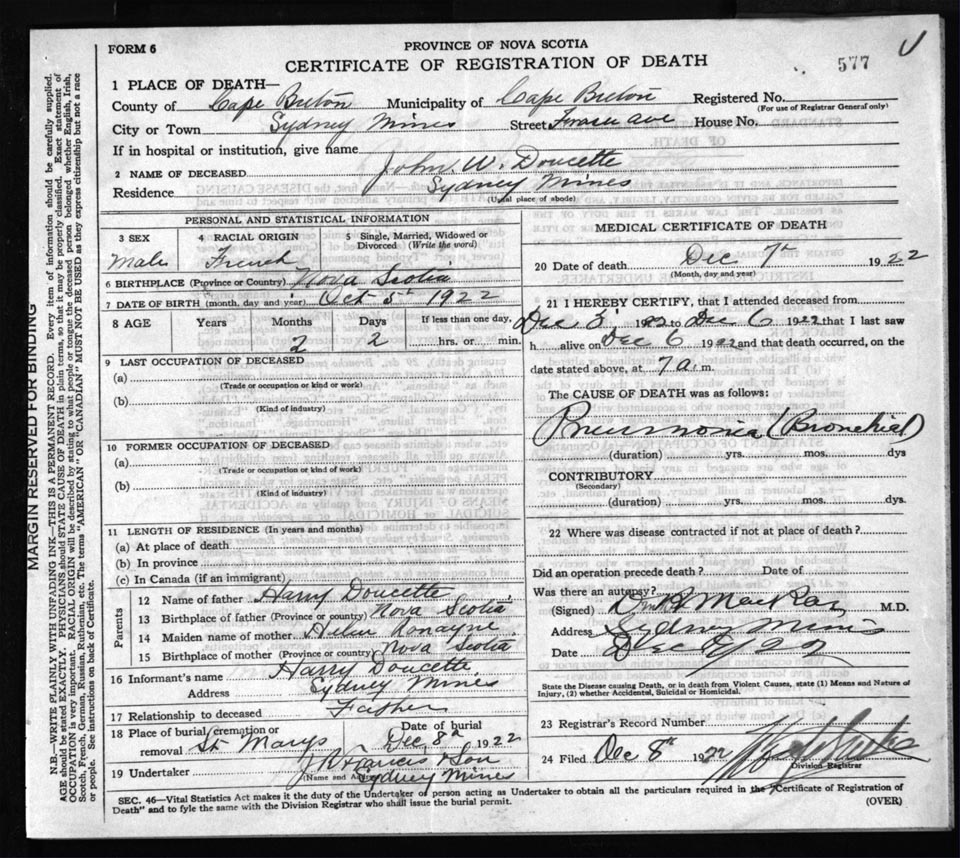 FORM 6
PROVINCE OF NOVA SCOTIA
CERTIFICATE OF REGISTRATION OF DEATH
577
1 PLACE OF DEATH—
County of Cape Breton Municipality of Cape Breton Registered No.
(For use of Registrar General only)
City or Town Sydney Mines Street Fraser Ave House No.
If in hospital or institution, give name
2 NAME OF DECEASED John. W. Doucette
Residence Sydney Mines
(Usual place of abode)
PERSONAL AND STATISTICAL INFORMATION
3 SEX 4 RACIAL ORIGIN 5 Single, Married, Widowed or Divorced (Write the word)
Male French
6 BIRTHPLACE (Province or Country) Nova Scotia
7 DATE OF BIRTH (month, day and year) Oct 5th 1922
8 AGE Years Months Days If less than one day,
2 2 hrs. or min.
9 LAST OCCUPATION OF DECEASED
(a)
(Trade or occupation or kind or work)
(b)
(Kind of industry)
10 FORMER OCCUPATION OF DECEASED
(a)
(Trade or occupation or kind of work)
(b)
(Kind of industry)
11 LENGTH OF RESIDENCE (In years and months)
(a) At place of death
(b) In province
(c) In Canada (if an immigrant)
Parents
12 Name of father Harry Doucette
13 Birthplace of father (Province or country) Nova Scotia
14 Maiden name of mother Helen Ronayne
15 Birthplace of mother (Province or country) Nova Scotia
16 Informant's name Harry Doucette
Address Sydney Mines
17 Relationship to deceased Father
18 Place of burial, cremation or removal St Marys Date of burial Dec 8th 1922
19 Undertaker J R Francis & Son
(Name and Address) Sydney Mines
MEDICAL CERTIFICATE OF DEATH
20 Date of death Dec 7th 1922
(Month, day and year)
21 I HEREBY CERTIFY, that I attended deceased from
Dec 3, 1922 to Dec 6 1922 that I last saw
h alive on Dec 6 1922 and that death occurred, on the
date stated above, at 7 a. m.
The CAUSE OF DEATH was as follows:
Pneumonia (Bronchial)
(duration) yrs. mos. dys
CONTRIBUTORY
(Secondary)
(duration) yrs. mos. dys.
22 Where was disease contracted if not at place of death?
Did an operation precede death? Date of
Was there an autopsy?
(Signed) MacRae M.D.
Address Sydney Mines
Date Dec /22
State the Disease causing Death, or in death from Violent Causes, state (1) Means and Nature of
Injury, (2) whether Accidental, Suicidal or Homicidal.
23 Registrar's Record Number
24 Filed Dec 8th 1922
Division Registrar
SEC. 46—Vital Statistics Act makes it the duty of the Undertaker or person acting as Undertaker to obtain all the particulars required in the "Certificate of Registration of
Death" and to fyle the same with the Division Registrar who shall issue the burial permit.
(OVER)
MARGIN RESERVED FOR BINDING
N.B.—WRITE PLAINLY WITH UNFADING INK—THIS IS A PERMANENT RECORD. Every item of information should be carefully supplied.
AGE should be stated EXACTLY. PHYSICIANS should STATE CAUSE OF DEATH in plain terms, so that it may be properly classified. Exact statement of
OCCUPATION is very important. RACIAL ORIGIN will be described by stating to what people or tongue the deceased person belonged, whether English, Irish,
Scotch, French, German, Russian, Ruthenian, etc. The terms "AMERICAN" or "CANADIAN" MUST NOT BE USED as they express citizenship but not a race
or people. See instructions on back of Certificate.